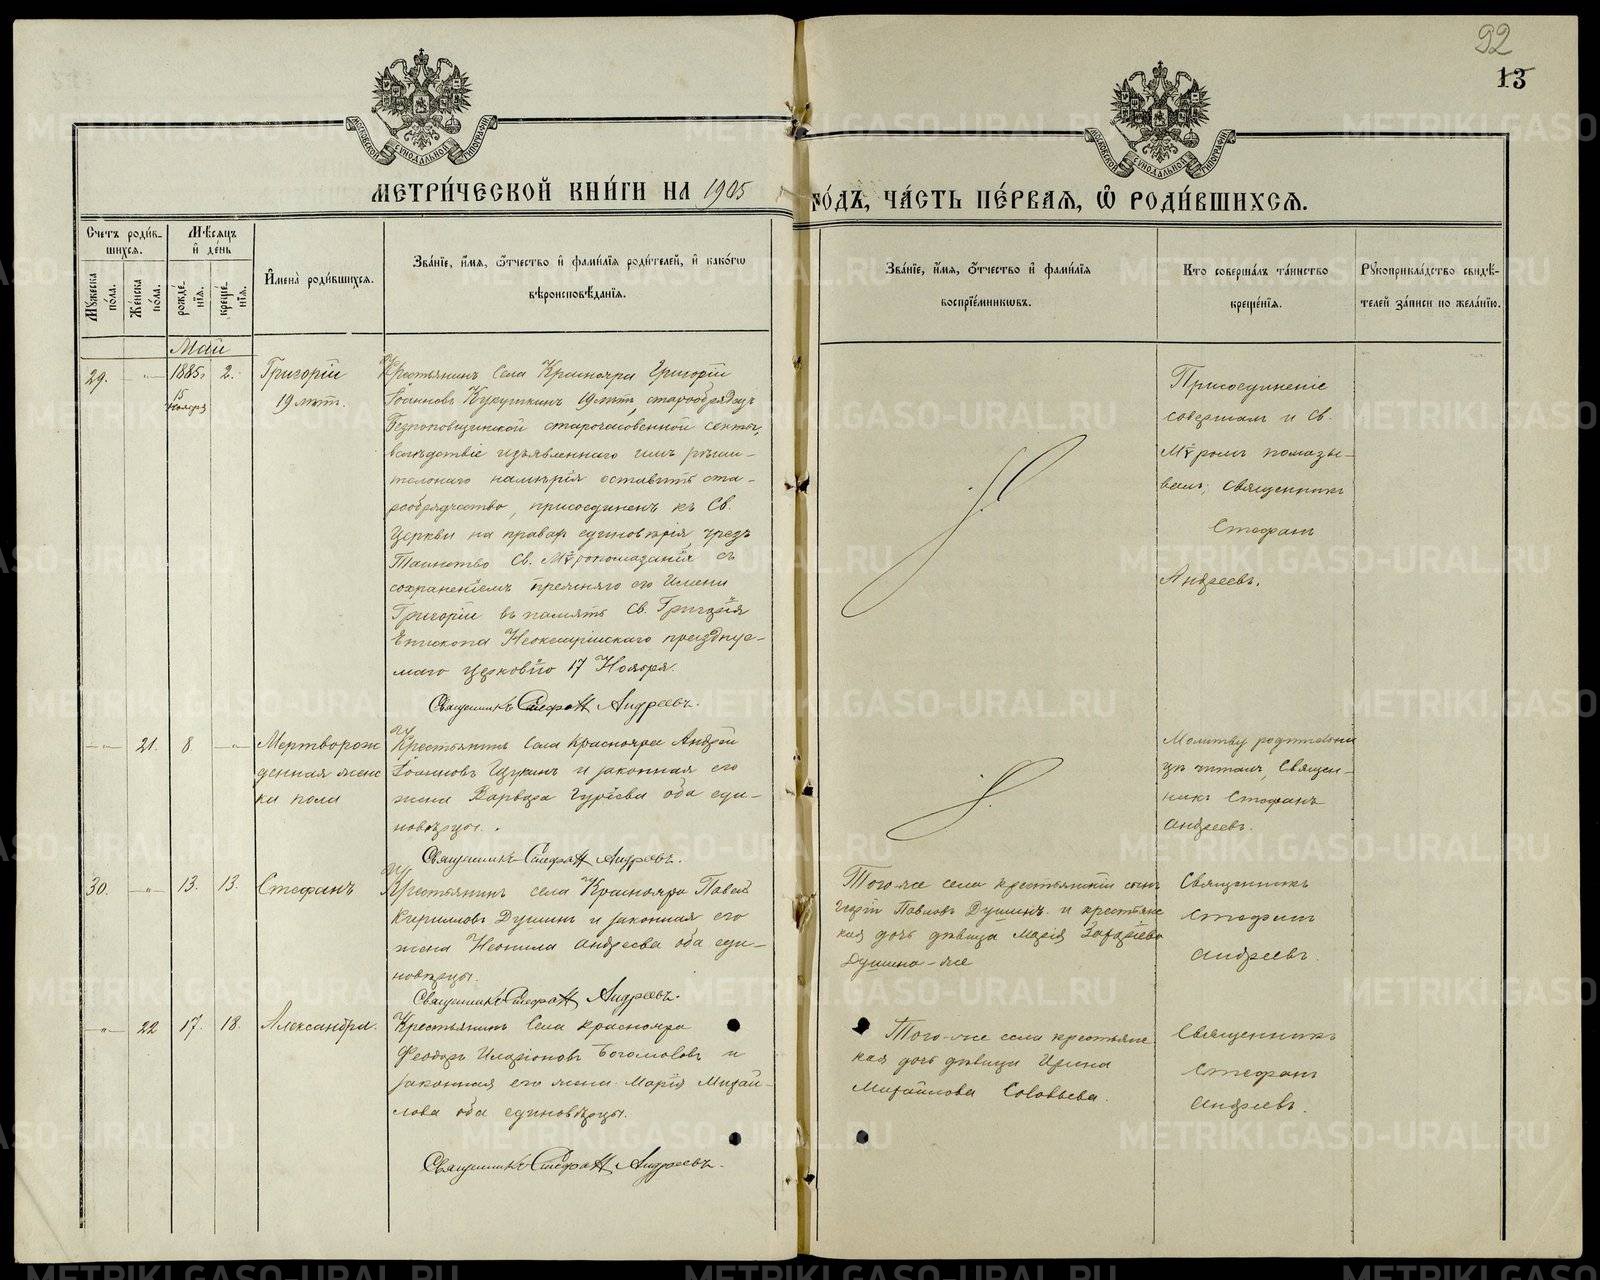 92
13
МОСКОВСКОЙ СУНОДАЛЬНОЙ ТИПОГРАФІИ
МОСКОВСКОЙ СУНОДАЛЬНОЙ ТИПОГРАФІИ
МЕТРИ́ЧЕСКОЙ КНИ́ГИ НА 1905
ГО́ДЪ, ЧА́СТЬ ПЕ́РВАѦ, Ѡ҆ РОДИ́ВШИХСѦ.
Счетъ роди́в-
шихсѧ.
Мꙋ́жеска по́ла.
Же́нска по́ла.
Мѣ́сѧцъ
и҆ де́нь
рожде-
нїѧ.
креще́-
нїѧ.
И҆мена̀ роди́вшихсѧ.
Зва́нїе, и҆́мѧ, ѻ҆́тчество и҆ фами́лїѧ роди́телей, и҆ како́гѡ
вѣроисповѣ́данїѧ.
Зва́нїе, и҆́мѧ, ѻ҆́тчество и҆ фами́лїѧ
воспрїе́мникѡвъ.
Кто̀ соверша́лъ та́инство
креще́нїѧ.
Рꙋкоприкла́дство свидѣ́-
телей за́писи по жела́нїю.
Май
29. -„- 1885г. 15 Ноября 2. Григорій
19 лѣт.
Крестьянинъ Села Краснояра Григорій
Іоанновъ Кукушкинъ 19 лѣтъ, старообрядецъ
Безпоповщинской старочасовенной секты,
вслѣдствіе изъявленнаго имъ рѣши-
тельнаго намѣрія оставить ста-
рообрядчество, присоединенъ къ Св.
Церкви на правах единовѣрія, чрезъ
Таинство Св. Мѵропомазанія съ
сохраненіемъ прежняго его имени
Григорій въ память Св. Григорія
Епископа Неокесарійскаго празднуе-
маго церковію 17 Ноября.
Священникъ Стефанъ Андреевъ.
Присоединеніе
совершал и Св.
Мѵромъ помазы-
валъ, Священникъ
Стефанъ
Андреевъ.
-„- 21. 8 -„- Мертворож
денная женс
ка пола
Крестьянинъ Села Краснояра Андрей
Іоанновъ Щукинъ и законная его
жена Варвара Гуріева оба еди-
новѣрцы.
Священникъ Стефанъ Андреевъ.
Молитву родительни
цѣ читалъ, Священ-
никъ Стефанъ
Андреевъ.
30. -„- 13. 13. Стефанъ
Крестьянинъ села Красноярa Павел
Кирилловъ Душинъ и законная его
жена Неонила Андреева оба еди-
новѣрцы.
Священникъ Стефанъ Андреевъ.
Того-же села крестьянскій сынъ
Георгій Павловъ Душинъ и крестьянс
кая дочь дѣвица Марія Захаріева
Душина-же
Священникъ
Стефанъ
Андреевъ.
-„- 22 17. 18. Александра.
Крестьянинъ Села Красноярa
Феодоръ Иларіоновъ Богомоловъ и
законная его жена Марія Михай-
лова оба единовѣрцы.
Священникъ Стефанъ Андреевъ.
Того-же села крестьянс
кая дочь дѣвица Ирина
Михайлова Соловьева.
Священникъ
Стефанъ
Андреевъ.
METRIKI.GASO-URAL.RU